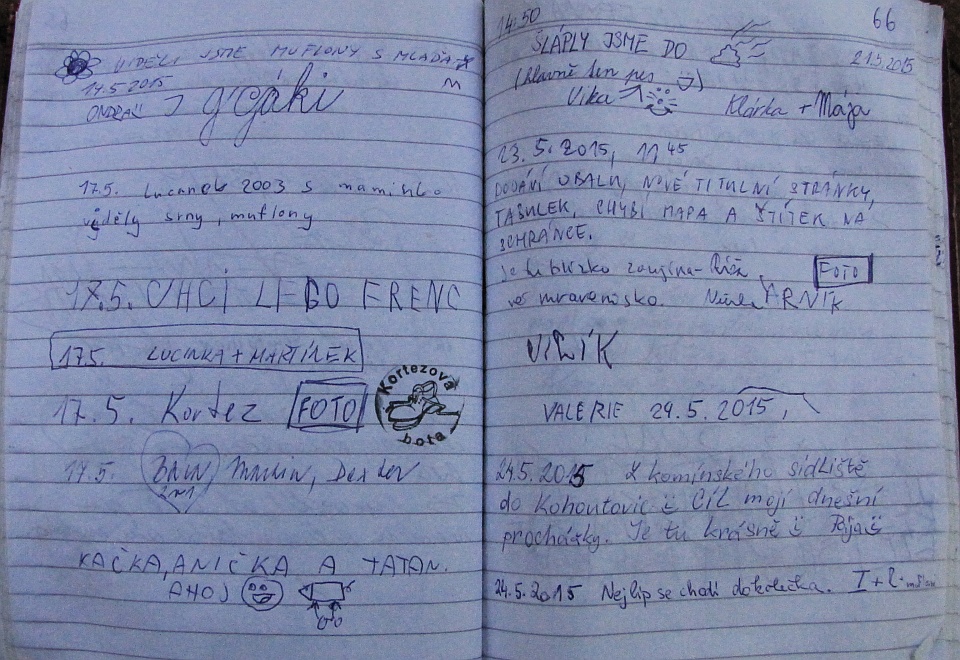 VIDĚLI JSME MUFLONY S MLÁĎATY
17.5 2015
ONDRÁŠ
17.5. Lucanek 2003 s maminkó
viděly srny, muflony
17.5. CHCI LEGO FRENC
17.5. LUCINKA + MARTÍNEK
17.5. Kortez FOTO
Kortezova
bota
17.5.
KAČKA, ANIČKA A TATAN.
AHOJ
14:50
66
ŠLÁPLY JSME DO
21.5.2015
(hlavně ten pes
Vika
Klárka + Mája
23.5.2015, 11 45
DODÁNÍ OBALU, NOVÉ TITULNÍ STRÁNKY,
TABULEK, CHYBÍ MAPA A ŠTÍTEK NA
SCHRÁNCE.
FOTO
mravenisko.
VILÍK
VALERIE 29.5.2015,
24.5.2015 Z komínského sídliště
do Kohoutovic Cíl mojí dnešní
procházky. Je tu krásně
24.5.2015 Nejlíp se chodí dokolečka.